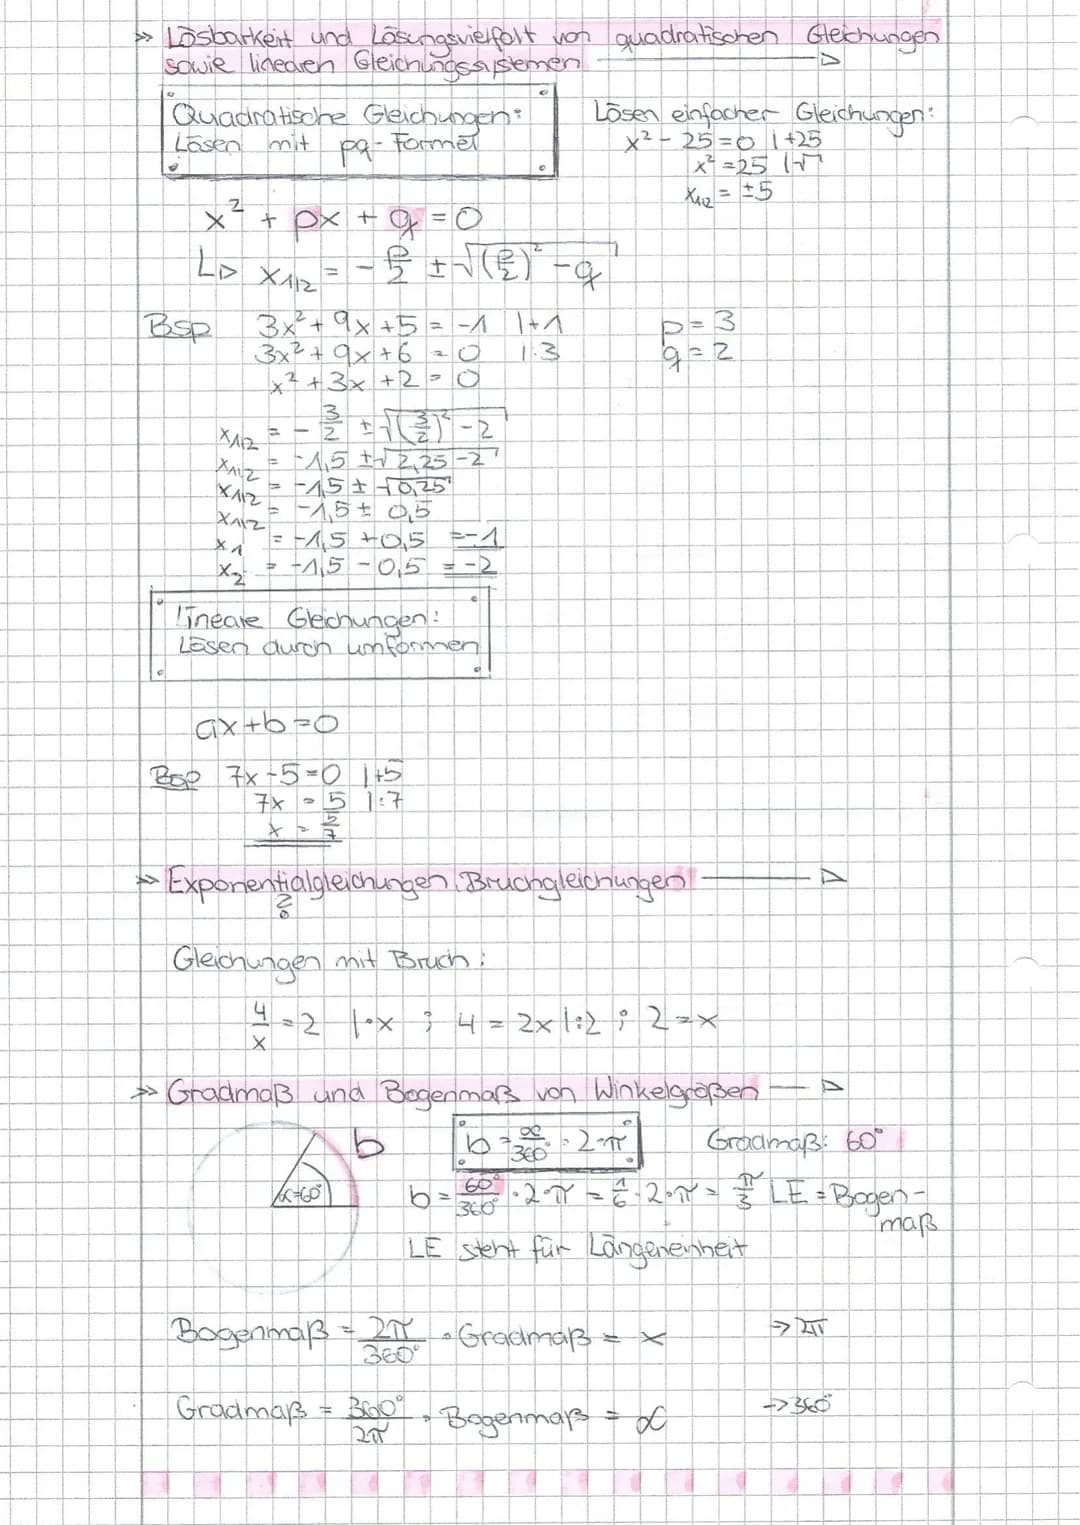 » Lösbarkeit und Lösungsvielfalt von quadratischen Gleichungen
sowie linearen Gleichungssystemen
Quadratische Gleichungen:
Lösen mit pq-Formel
Lösen einfacher Gleichungen:
x² - 25 = 0 |+25
x² = 25 |√
x₁/₂ = ±5
x² + px + q = 0
↳ x₁/₂ = -p/2 ± √((p/2)² - q)
Bsp 3x² + 9x + 5 = -1 |+1
3x² + 9x + 6 = 0 |:3
x² + 3x + 2 = 0
p = 3
q = 2
x₁/₂ = - 3/2 ± √((3/2)² - 2)
x₁/₂ = -1,5 ± √2,25 - 2
x₁/₂ = -1,5 ± √0,25
x₁/₂ = -1,5 ± 0,5
x₁ = -1,5 + 0,5 = -1
x₂ = -1,5 - 0,5 = -2
lineare Gleichungen:
Lösen durch umformen
ax + b = 0
Bsp 7x - 5 = 0 |+5
7x = 5 |:7
x = 5/7
» Exponentialgleichungen, Bruchgleichungen
?
Gleichungen mit Bruch:
4/x = 2 |·x ; 4 = 2x |:2 ; 2 = x
» Gradmaß und Bogenmaß von Winkelgrößen
b
α=60°
b = α/360° · 2·π
Gradmaß: 60°
b = 60°/360° · 2·π = 1/6 · 2·π = π/3 LE = Bogen-
maß
LE steht für Längeneinheit
Bogenmaß = 2π/360° · Gradmaß = x → 2π
Gradmaß = 360°/2π · Bogenmaß = α → 360°